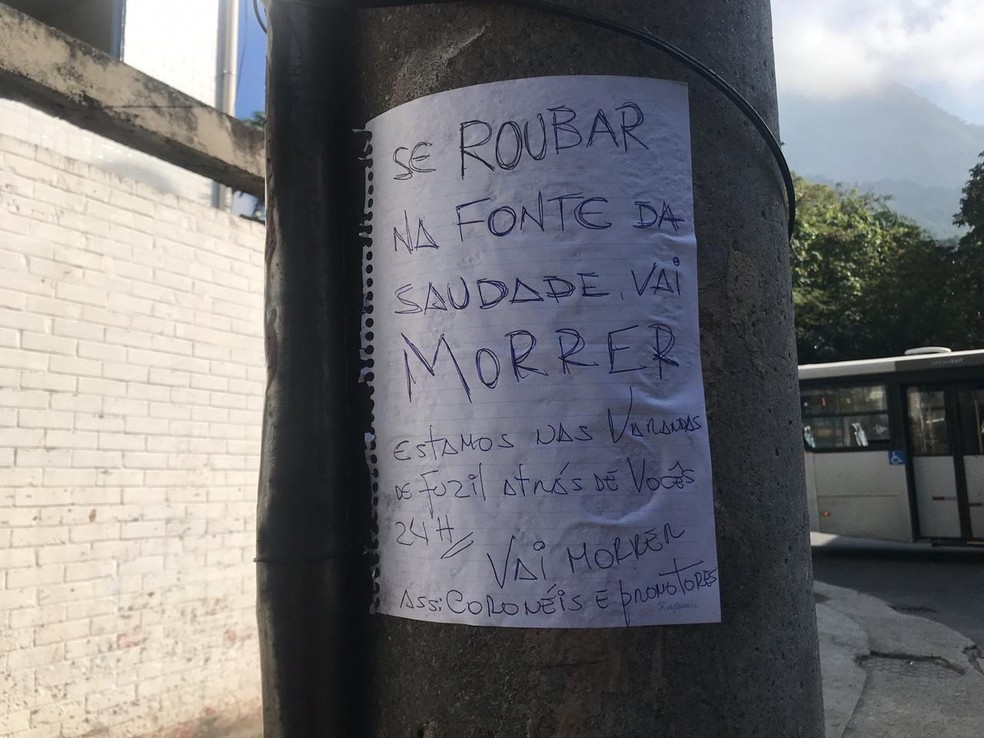 SE ROUBAR
NA FONTE DA
SAUDADE, VAI
MORRER
ESTAMOS NAS VARANDAS
DE FUZIL ATRÁS DE VOCÊS
24H
VAI MORRER
ASS: CORONÉIS E PROMOTORES